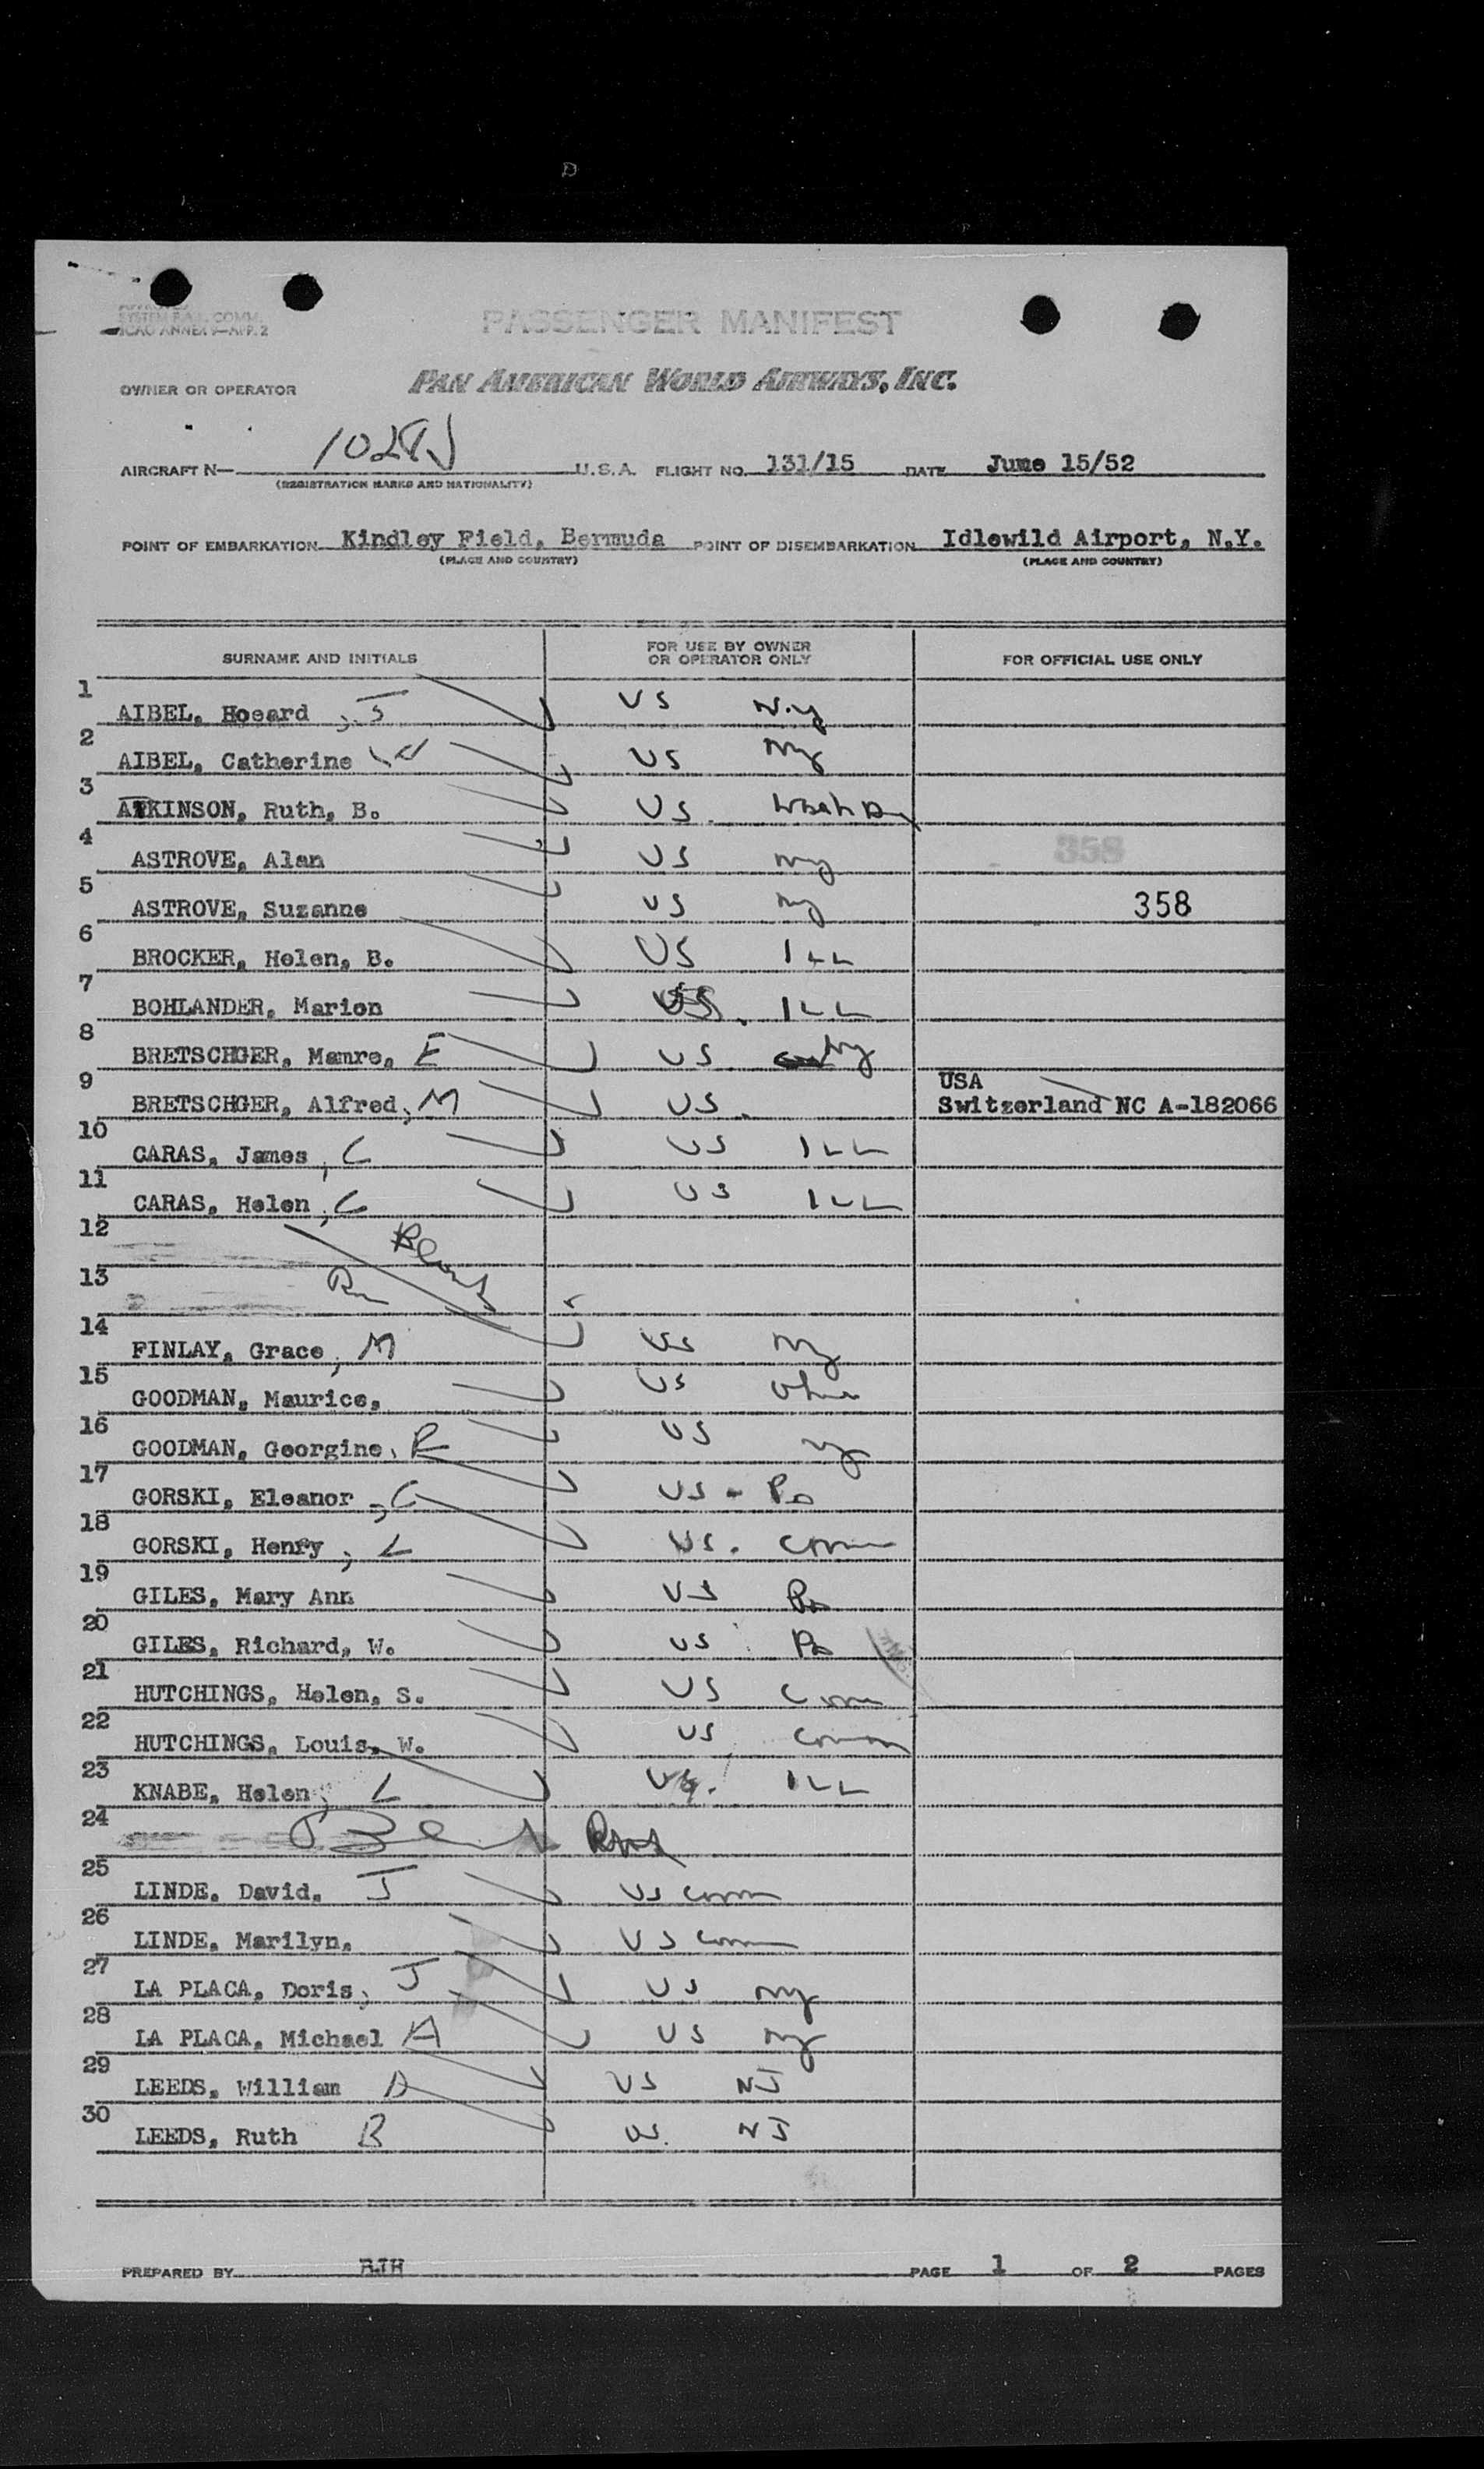 SYSTEM F.A.L. COMM.
ICAO ANNEX 9—APP. 2
PASSENGER MANIFEST
OWNER OR OPERATOR PAN AMERICAN WORLD AIRWAYS, INC.
AIRCRAFT N— U.S.A. FLIGHT NO. 131/15 DATE June 15/52
(REGISTRATION MARKS AND NATIONALITY)
POINT OF EMBARKATION Kindley Field, Bermuda POINT OF DISEMBARKATION Idlewild Airport, N.Y.
(PLACE AND COUNTRY) (PLACE AND COUNTRY)
SURNAME AND INITIALS FOR USE BY OWNER OR OPERATOR ONLY FOR OFFICIAL USE ONLY
1 AIBEL, Hoeard , J US N.y
2 AIBEL, Catherine US Ny
3 ATKINSON, Ruth, B. US. Wash
4 ASTROVE, Alan US Ny 358
5 ASTROVE, Suzanne US Ny 358
6 BROCKER, Helen, B. US ILL
7 BOHLANDER, Marion US. ILL
8 BRETSCHGER, Mamre, E US Ny
9 BRETSCHGER, Alfred, M US. USA
Switzerland NC A-182066
10 CARAS, James , C US ILL
11 CARAS, Helen , C US ILL
12 Blank
13
14 FINLAY, Grace , M US Ny
15 GOODMAN, Maurice, US Ohio
16 GOODMAN, Georgine, R US Ny
17 GORSKI, Eleanor , C US - Pa
18 GORSKI, Henry , L US. Conn
19 GILES, Mary Ann US Pa
20 GILES, Richard, W. US Pa
21 HUTCHINGS, Helen, S. US Conn
22 HUTCHINGS, Louis, W. US Conn
23 KNABE, Helen, L US. ILL
24 Blank
25 LINDE, David, J US Conn
26 LINDE, Marilyn, US Conn
27 LA PLACA, Doris, J US Ny
28 LA PLACA, Michael A US Ny
29 LEEDS, William D US NJ
30 LEEDS, Ruth B US. NJ
PREPARED BY RJH PAGE 1 OF 2 PAGES